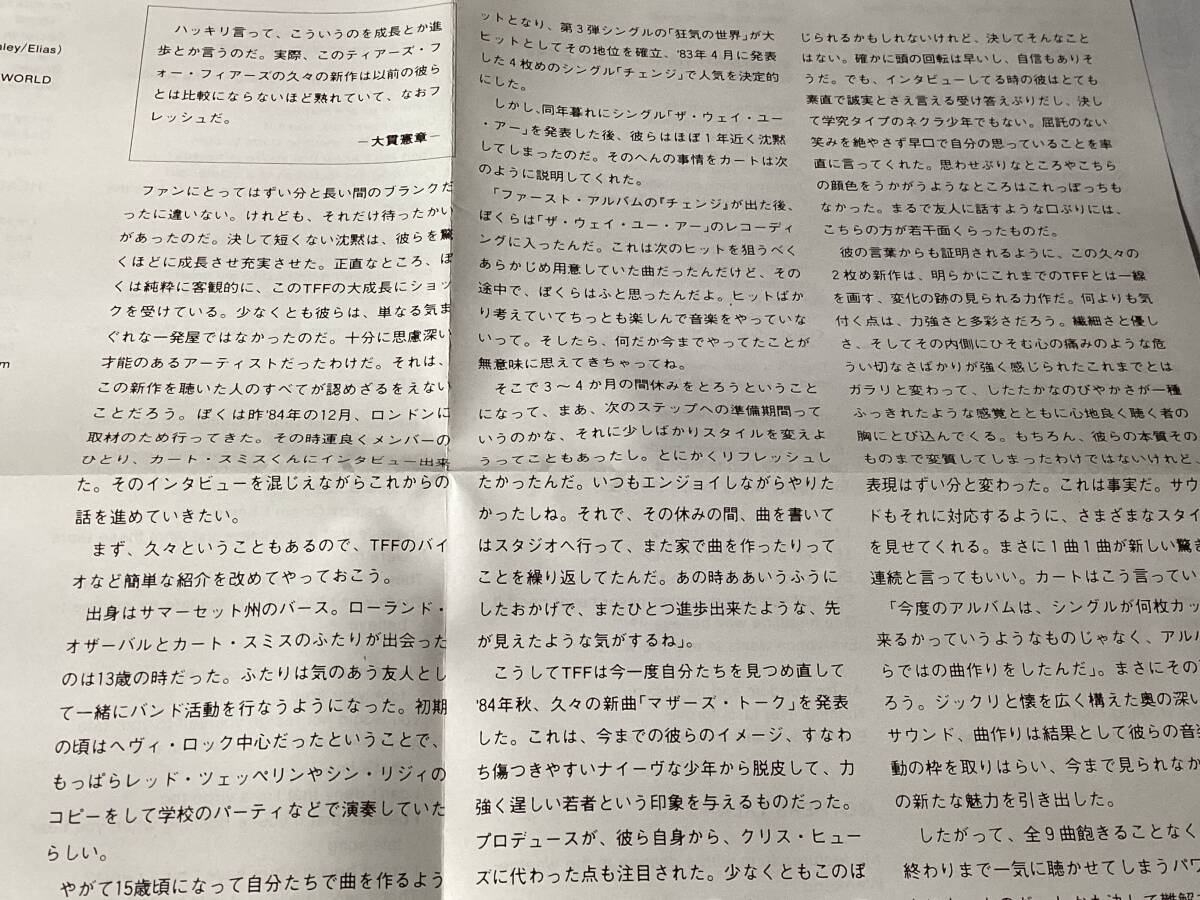 ley/Elias)
WORLD
m
ハッキリ言って、こういうのを成長とか進
歩とか言うのだ。実際、このティアーズ・フ
ォー・フィアーズの久々の新作は以前の彼ら
とは比較にならないほど熟れていて、なおフ
レッシュだ。
―大貫憲章―
ファンにとってはずい分と長い間のブランクだ
ったに違いない。けれども、それだけ待ったかい
があったのだ。決して短くない沈黙は、彼らを驚
くほどに成長させ充実させた。正直なところ、ぼ
くは純粋に客観的に、このTFFの大成長にショッ
クを受けている。少なくとも彼らは、単なる気ま
ぐれな一発屋ではなかったのだ。十分に思慮深い
才能のあるアーティストだったわけだ。それは、
この新作を聴いた人のすべてが認めざるをえない
ことだろう。ぼくは昨'84年の12月、ロンドンに
取材のため行ってきた。その時運良くメンバーの
ひとり、カート・スミスくんにインタビュー出来
た。そのインタビューを混じえながらこれからの
話を進めていきたい。
まず、久々ということもあるので、TFFのバイ
オなど簡単な紹介を改めてやっておこう。
出身はサマーセット州のバース。ローランド・
オザーバルとカート・スミスのふたりが出会った
のは13歳の時だった。ふたりは気のあう友人とし
て一緒にバンド活動を行なうようになった。初期
の頃はヘヴィ・ロック中心だったということで、
もっぱらレッド・ツェッペリンやシン・リジィの
コピーをして学校のパーティなどで演奏していた
らしい。
やがて15歳頃になって自分たちで曲を作るよう
ットとなり、第3弾シングルの「狂気の世界」が大
ヒットとしてその地位を確立、'83年4月に発表
した4枚めのシングル「チェンジ」で人気を決定的
にした。
しかし、同年暮れにシングル「ザ・ウェイ・ユー
・アー」を発表した後、彼らはほぼ1年近く沈黙
してしまったのだ。そのへんの事情をカートは次
のように説明してくれた。
「ファースト・アルバムの『チェンジ』が出た後、
ぼくらは「ザ・ウェイ・ユー・アー」のレコーディ
ングに入ったんだ。これは次のヒットを狙うべく
あらかじめ用意していた曲だったんだけど、その
途中で、ぼくらはふと思ったんだよ。ヒットばか
り考えていてちっとも楽しんで音楽をやっていな
いって。そしたら、何だか今までやってたことが
無意味に思えてきちゃってね。
そこで3～4か月の間休みをとろうということ
になって、まあ、次のステップへの準備期間って
いうのかな、それに少しばかりスタイルを変えよ
うってこともあったし。とにかくリフレッシュし
たかったんだ。いつもエンジョイしながらやりた
かったしね。それで、その休みの間、曲を書いて
はスタジオへ行って、また家で曲を作ったりって
ことを繰り返してたんだ。あの時ああいうふうに
したおかげで、またひとつ進歩出来たような、先
が見えたような気がするね」。
こうしてTFFは今一度自分たちを見つめ直して
'84年秋、久々の新曲「マザーズ・トーク」を発表
した。これは、今までの彼らのイメージ、すなわ
ち傷つきやすいナイーヴな少年から脱皮して、力
強く逞しい若者という印象を与えるものだった。
プロデュースが、彼ら自身から、クリス・ヒュー
ズに代わった点も注目された。少なくともこのぼ
じられるかもしれないけれど、決してそんなこと
はない。確かに頭の回転は早いし、自信もありそ
うだ。でも、インタビューしてる時の彼はとても
素直で誠実とさえ言える受け答えぶりだし、決し
て学究タイプのネクラ少年でもない。屈託のない
笑みを絶やさず早口で自分の思っていることを率
直に言ってくれた。思わせぶりなところやこちら
の顔色をうかがうようなところはこれっぽっちも
なかった。まるで友人に話すような口ぶりには、
こちらの方が若干面くらったものだ。
彼の言葉からも証明されるように、この久々の
2枚め新作は、明らかにこれまでのTFFとは一線
を画す、変化の跡の見られる力作だ。何よりも気
付く点は、力強さと多彩さだろう。繊細さと優し
さ、そしてその内側にひそむ心の痛みのような危
うい切なさばかりが強く感じられたこれまでとは
ガラリと変わって、したたかなのびやかさが一種
ふっきれたような感覚とともに心地良く聴く者の
胸にとび込んでくる。もちろん、彼らの本質その
ものまで変質してしまったわけではないけれど、
表現はずい分と変わった。これは事実だ。サウ
ドもそれに対応するように、さまざまなスタイ
を見せてくれる。まさに1曲1曲が新しい驚き
連続と言ってもいい。カートはこう言ってい
「今度のアルバムは、シングルが何枚カッ
来るかっていうようなものじゃなく、アル
らではの曲作りをしたんだ」。まさにその
ろう。ジックリと懐を広く構えた奥の深い
サウンド、曲作りは結果として彼らの音楽
動の枠を取りはらい、今まで見られなか
の新たな魅力を引き出した。
したがって、全9曲飽きることなく
終わりまで一気に聴かせてしまうパワ